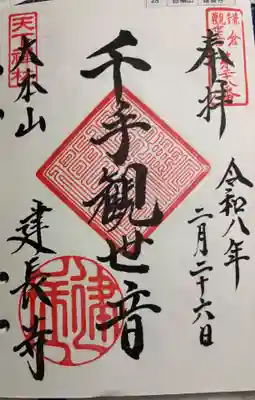 奉拝
令和八年
二月二十六日
千手観世音
天下禅林
大本山
建長寺